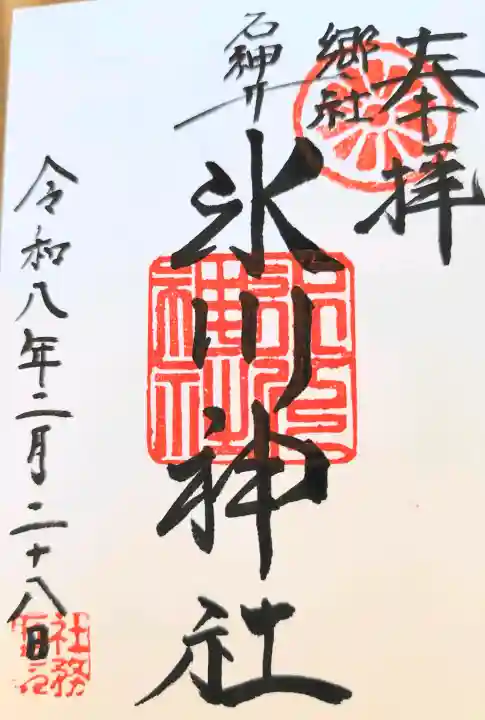 奉拝
郷社
石神井
氷川神社
氷川神社
令和八年二月二十八日
社務